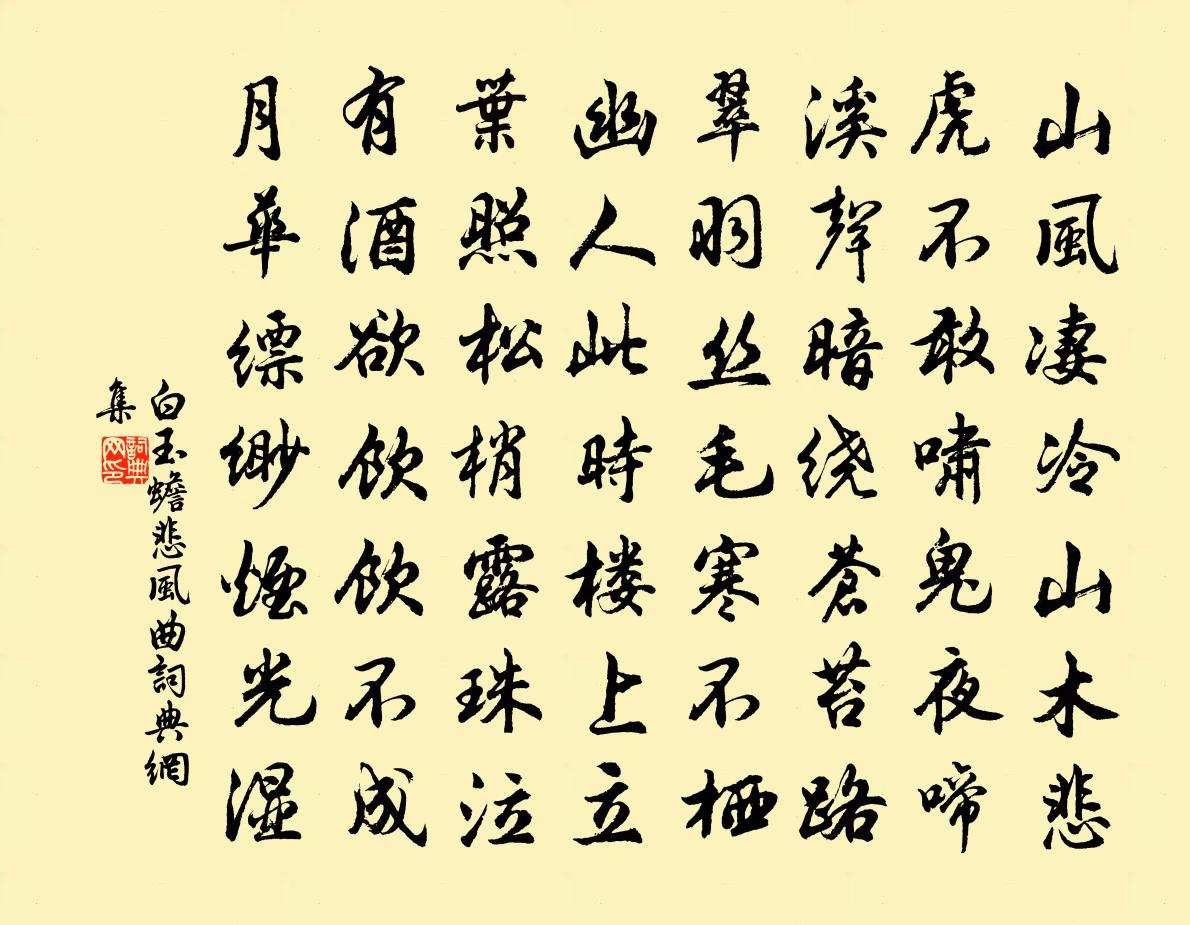 山風凄冷山木悲
虎不敢嘯鬼夜啼
溪聲暗绕蒼苔路
翠羽丝毛寒不栖
幽人此時楼上立
葉照松梢露珠泣
有酒欲飲飲不成
月華缥缈煙光湿
白玉蟾悲風曲詞典網
集
詞典
网印